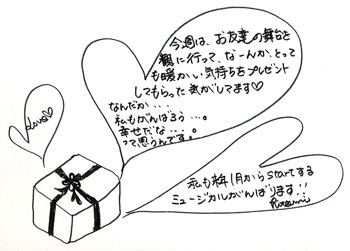 今週は、お友達の舞台を
観に行って、なーんか、とって
も暖かい気持ちをプレゼント
してもらった気がしてます♡
なんだか・・・
私もがんばろう…。
幸せだな・・・。
って思うんです。
Love♡
私も来年1月からstartする
ミュージカルがんばります!!